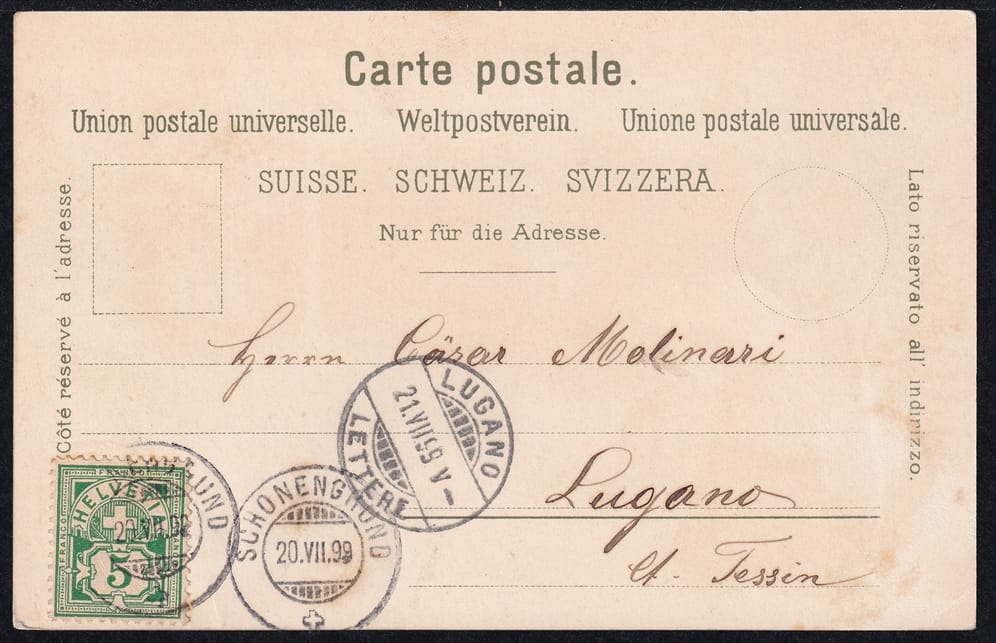 Carte postale.
Union postale universelle. Weltpostverein. Unione postale universale.
SUISSE. SCHWEIZ. SVIZZERA.
Nur für die Adresse.
Côté réservé à l'adresse.
Lato riservato all' indirizzo.
Herrn Cäsar Molinari
Lugano
Ct. Tessin
LUGANO
21.VII.99 V
LETTERE
SCHONENGRUND
20.VII.99
GRUND
20.VII.99
FRANCO
HELVETIA
FRANCO
5